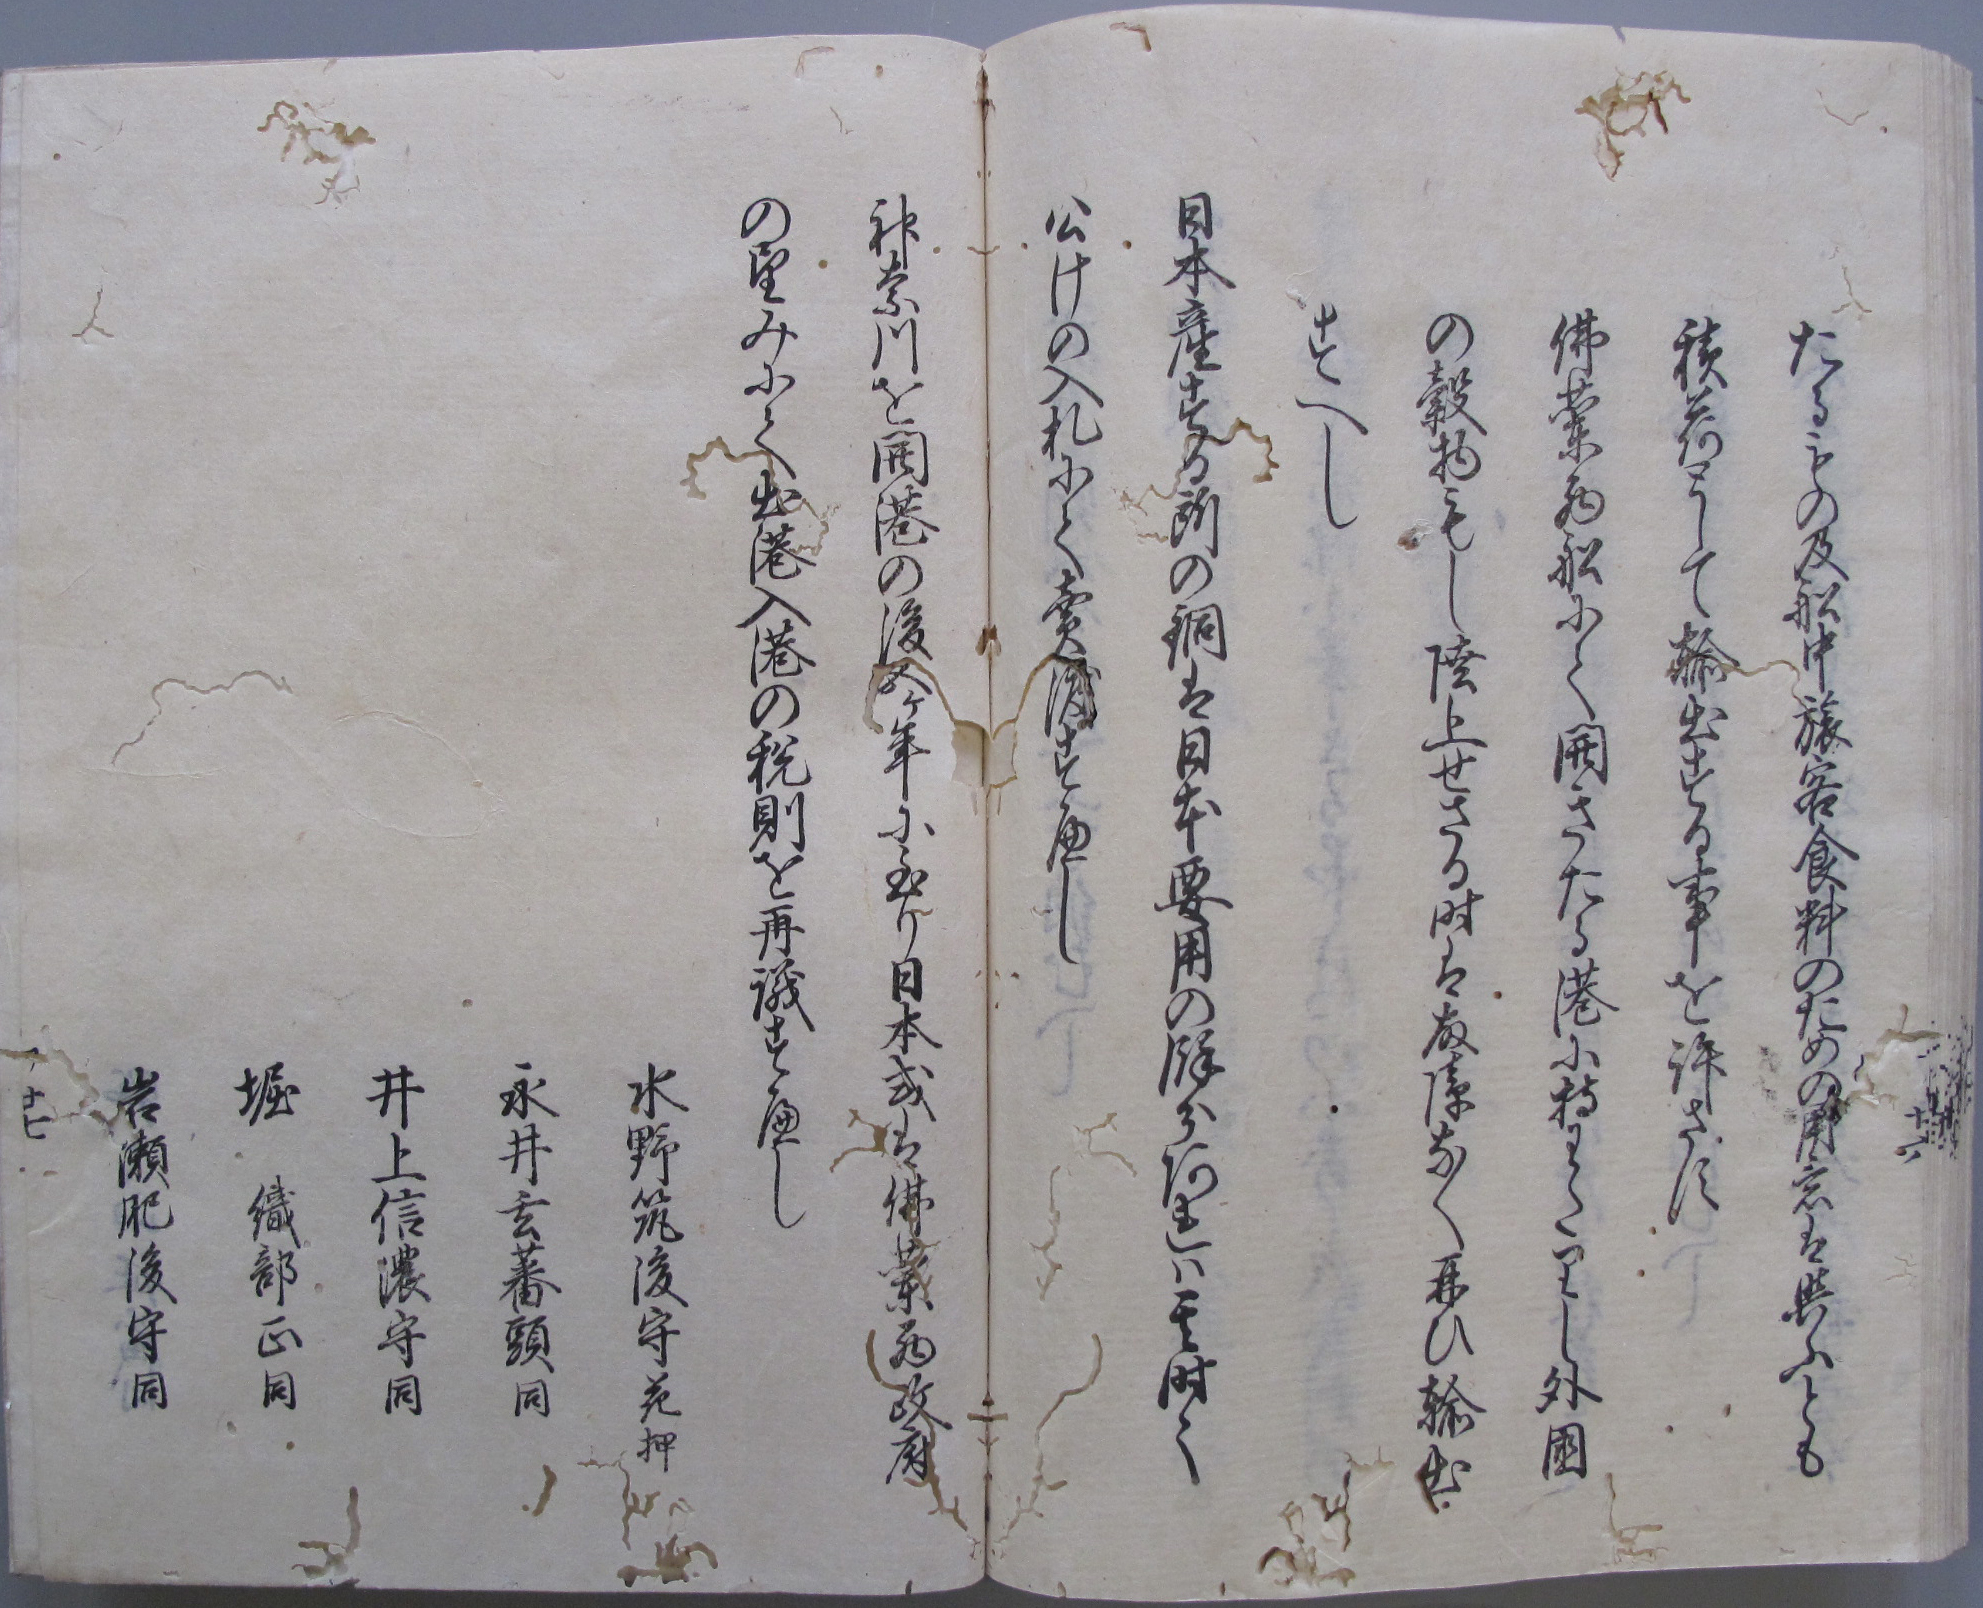 たるもの及船中旅客食料のための用意は與ふとも
積荷として輸出する事を許さす
佛蘭西船にて開きたる港に持わたりし外國
の穀物もし陸上せさる時は故障なく再ひ輸出
すへし
日本産する所の銅は日本要用の餘分あれハ其時々
公けの入札にて賣渡すへし
神奈川を開港の後五ヶ年に至り日本或は佛蘭西政府
の望みにて出港入港の税則を再議すへし
水野筑後守花押
永井玄蕃頭同
井上信濃守同
堀 織部正同
岩瀬肥後守同